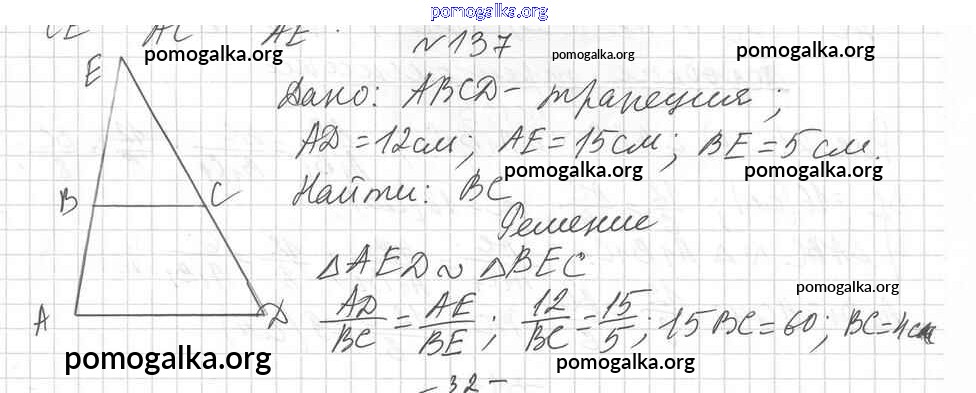 pomogalka.org
CE AC AE .
№137
pomogalka.org
pomogalka.org
pomogalka.org
E
Дано: ABCD - трапеция;
AD = 12 см; AE = 15 см; BE = 5 см.
pomogalka.org
pomogalka.org
Найти: BC
B C
Решение
△AED ~ △BEC
pomogalka.org
AD/BC = AE/BE; 12/BC = 15/5; 15 BC = 60; BC = 4 см
A D
pomogalka.org
pomogalka.org
- 32 -